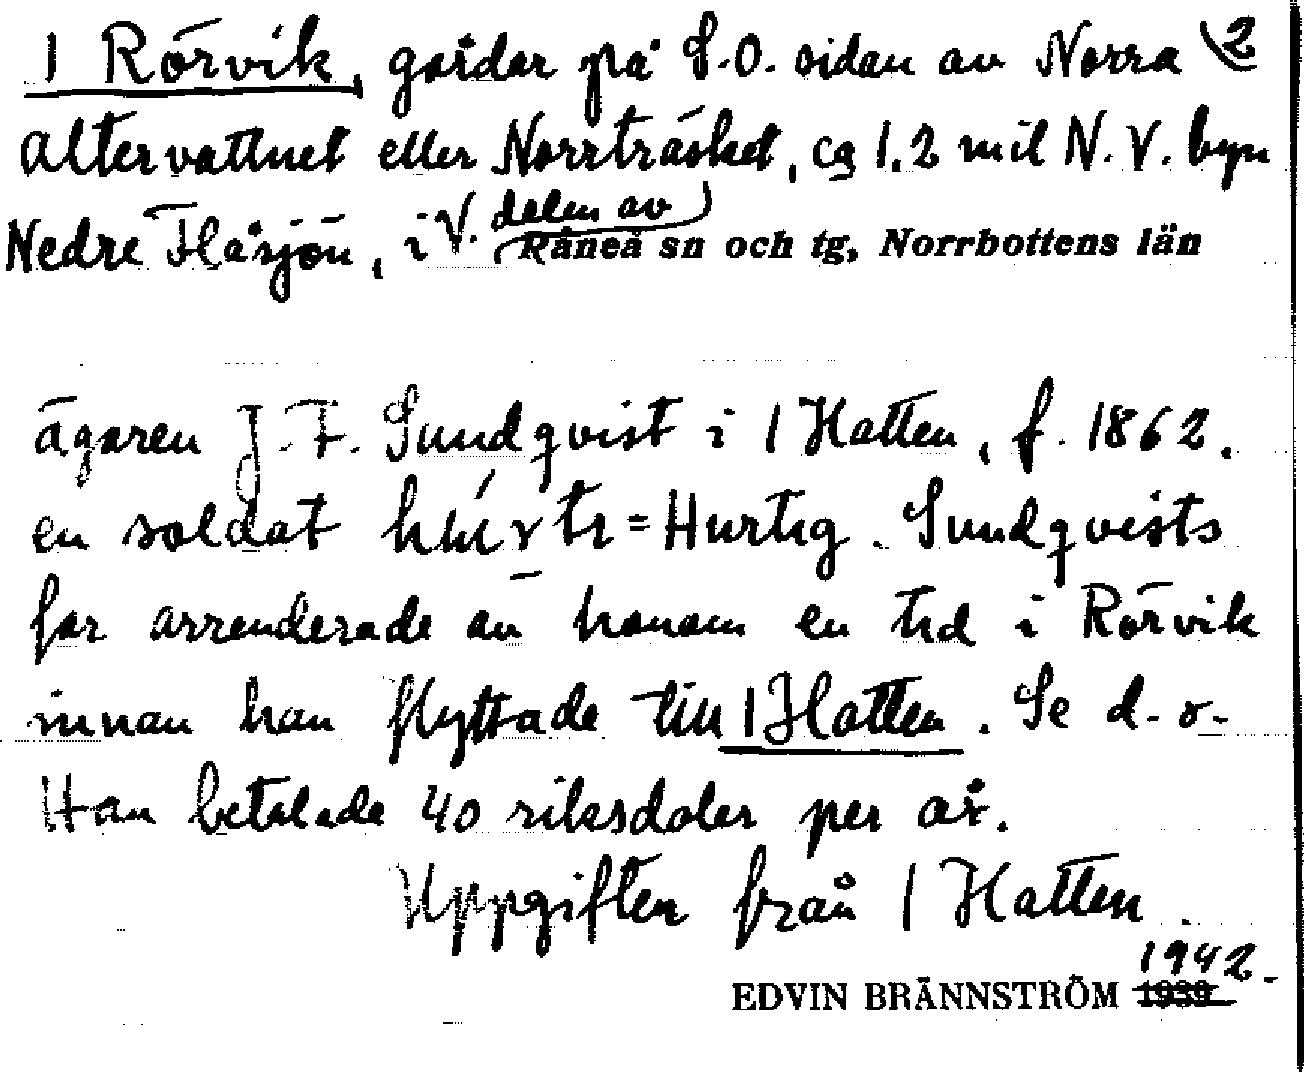 1 Rörvik, gårdar på S.O. sidan av Norra 2
Altervattnet eller Norrträsket, ca 1.2 mil N.V. byn
Nedre Flåsjön, i V. delen av Råneå sn och tg, Norrbottens län
ägaren J.F. Sundqvist i 1 Hatten, f. 1862.
en soldat = Hurtig. Sundqvists
far arrenderade av honom en tid i Rörvik
innan han flyttade till 1 Hatten. Se d.o.
Han betalade 40 riksdaler per år.
Uppgiften från 1 Hatten.
1942.
EDVIN BRÄNNSTRÖM 1939